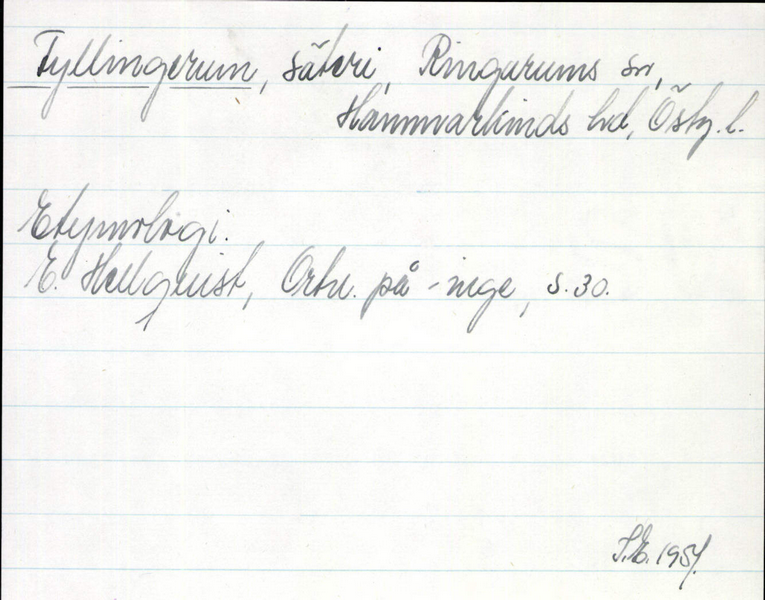 Fyllingerum, säteri, Ringarums sn,
Hammarkinds hd, Östg. l.
Etymologi.
E. Hellquist, Ortn. på -inge, s. 30.
S.E. 1954.